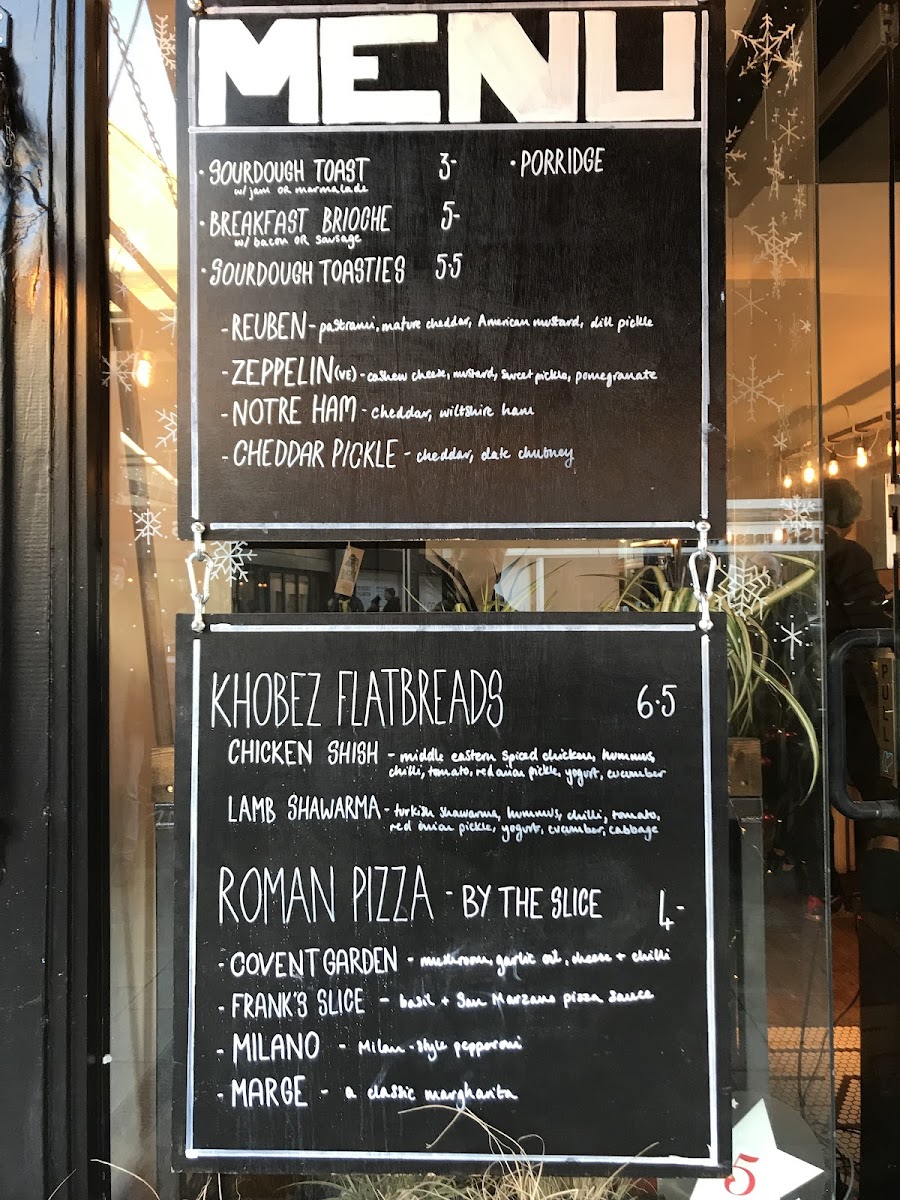 MENU
• SOURDOUGH TOAST 3- • PORRIDGE
w/ jam OR marmalade
• BREAKFAST BRIOCHE 5-
w/ bacon OR sausage
• SOURDOUGH TOASTIES 5.5
- REUBEN - pastrami, mature cheddar, American mustard, dill pickle
- ZEPPELIN (VE) - cashew cheese, mustard, sweet pickle, pomegranate
- NOTRE HAM - cheddar, wiltshire ham
- CHEDDAR PICKLE - cheddar, date chutney
KHOBEZ FLATBREADS 6.5
CHICKEN SHISH - middle eastern spiced chicken, hummus,
chilli, tomato, red onion pickle, yogurt, cucumber
LAMB SHAWARMA - turkish shawarma, hummus, chilli, tomato,
red onion pickle, yogurt, cucumber, cabbage
ROMAN PIZZA - BY THE SLICE 4-
- COVENT GARDEN - mushroom, garlic oil, cheese + chilli
- FRANK'S SLICE - basil + San Marzano pizza sauce
- MILANO - Milan-style pepperoni
- MARGE - a classic margharita
PULL
5